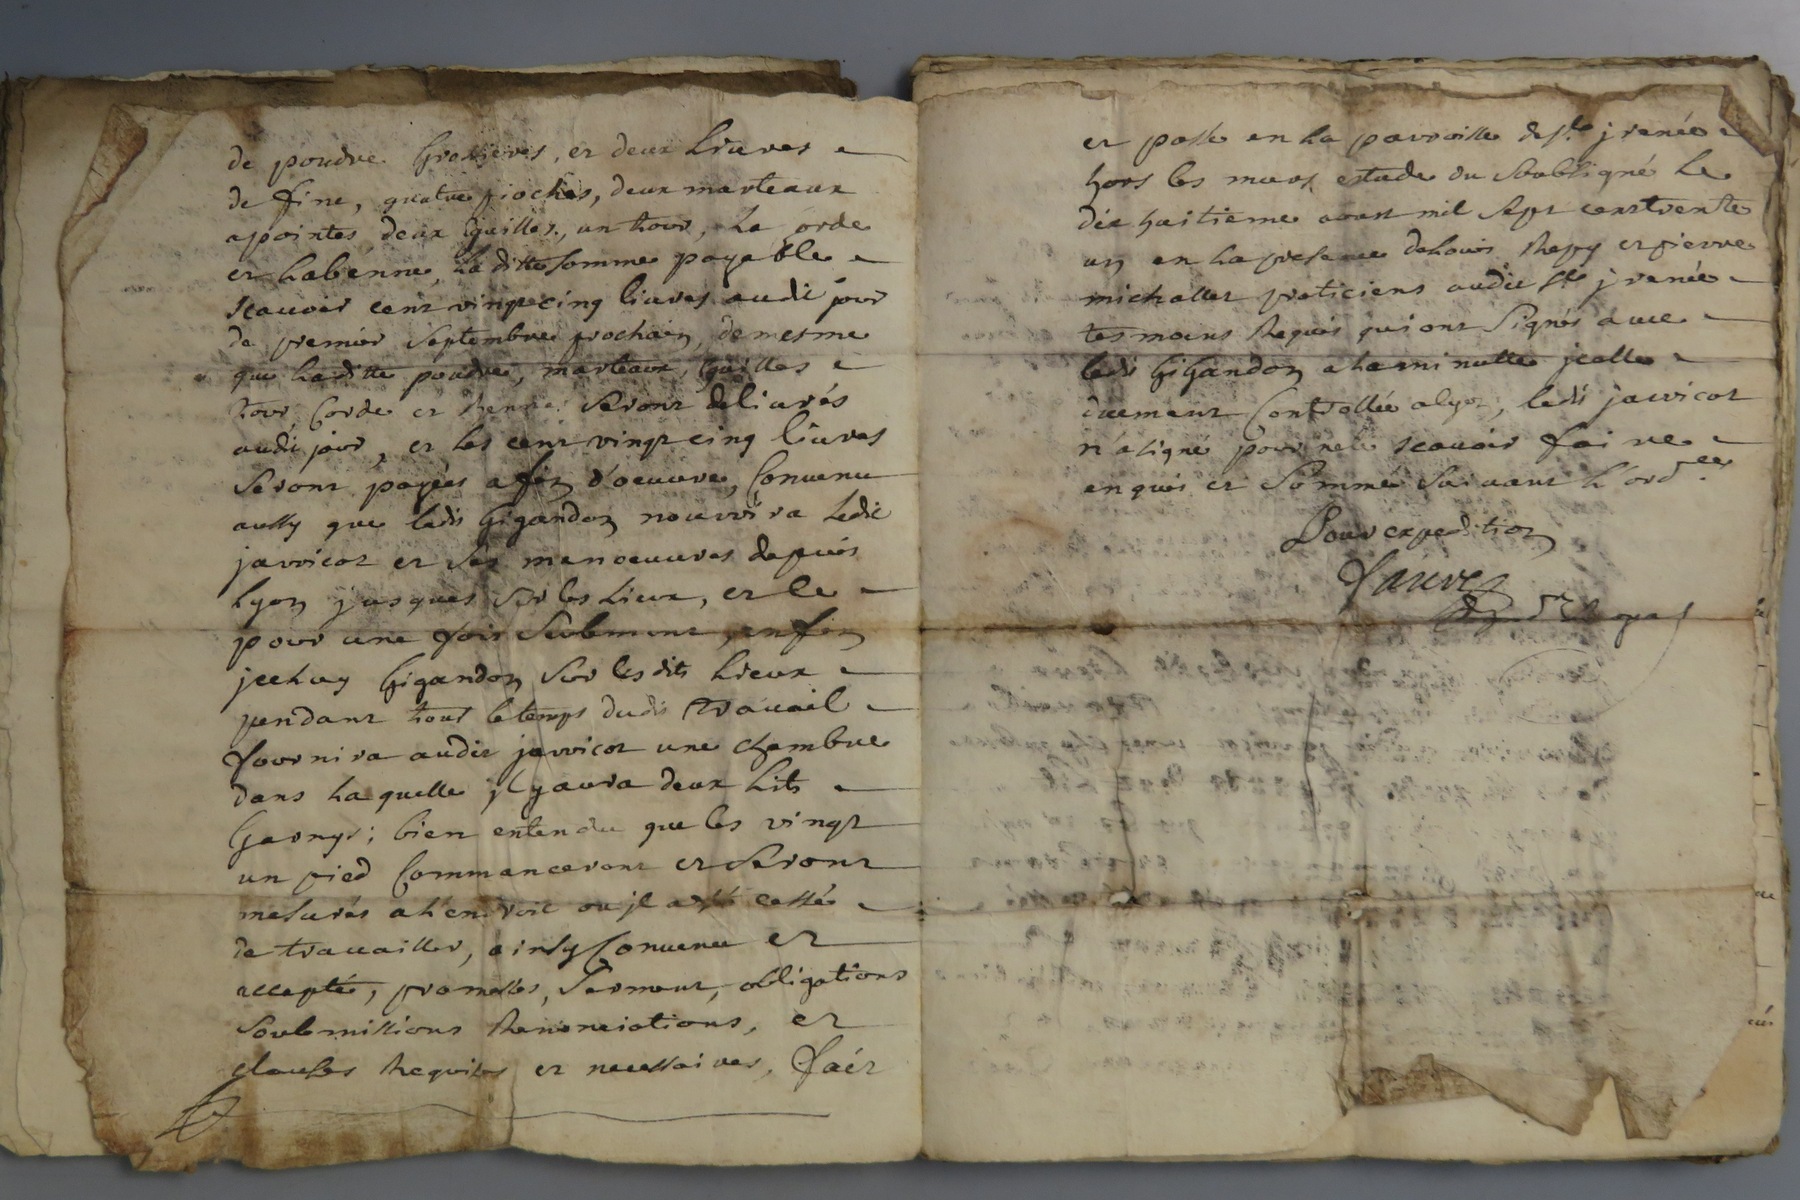 de poudre Grossieres, et deux Livres
de fine, quatre pioches, deux marteaux
apointes, deux Eguilles, un tour, La orde
et La benne, La ditte somme payable
scauoir cent vingt cinq liures audit jour
de premier Septembre prochain, de mesme
que La ditte poudre, marteaux, Eguilles
tour, Corde et benne Seront deliurés
audit jour, et les cent vingt cinq liures
Seront payées a fin d'oeuure, Conuenu
aussy que ledit Gigandon nourrira Ledit
jarricot et Ses manoeuures depuis
Lyon jusques Sur les Lieux, et le
pour une fois Seulement, enfin
jceluy Gigandon Sur lesdits Lieux
pendant tout le temps dudit Trauail
fournira audit jarricot une chambre
dans Laquelle jl yaura deux Lits
Garnys; bien entendu que les vingt
un pied Commanceront et Seront
mesurés a L'endroit ou jl a esté cessé
de trauailler, ainsy Conuenu et
accepté, promesses, Serment, obligations
Soubmissions Renonciations, et
clauses Requises et necessaires, fait
et passé en La parroisse de st jrenée
hors les murs estude du Soubsigné Le
dix huitieme aoust mil Sept cent trente
un en La presence de Louis Repy et pierre
michallet praticiens audit st jrenée
tesmoins Requis qui ont Signés auec
ledit Gigandon a La minutte jcelle
duement Controllée alyon, ledit jarricot
n'a signé pour ne le scauoir faire
enquis et Sommé Suiuant L'ord.ce
Pour expedition